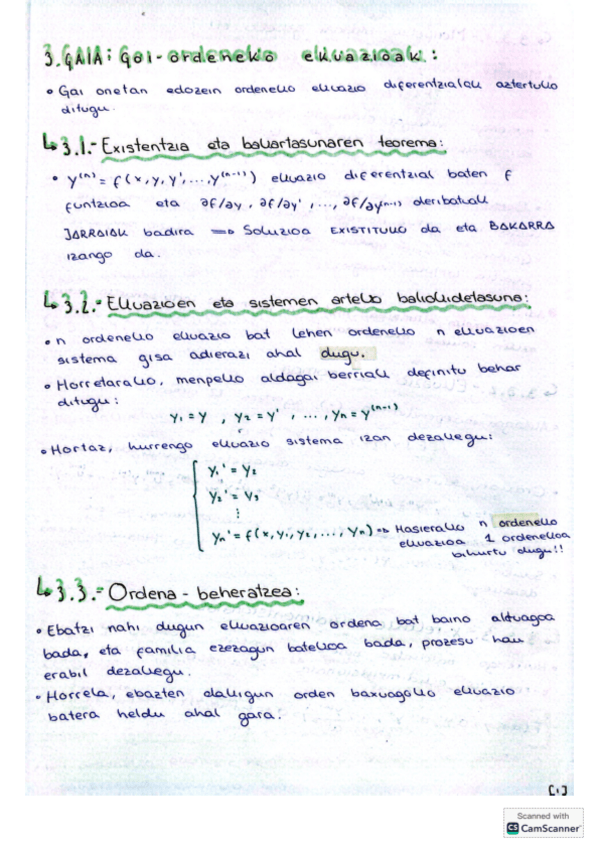 3. GAIA: Goi-ordeneko ekuazioak:
• Gai onetan edozein ordeneko ekuazio diferentzialak aztertuko
ditugu.
↳ 3.1.- Existentzia eta bakartasunaren teorema:
• y⁽ⁿ⁾ = f(x, y, y', ..., y⁽ⁿ⁻¹⁾) ekuazio diferentzial baten f
funtzioa eta ∂f/∂y, ∂f/∂y', ..., ∂f/∂y⁽ⁿ⁻¹⁾ deribatuak
JARRAIAK badira ⟹ Soluzioa EXISTITUKO da eta BAKARRA
izango da.
↳ 3.2.- Ekuazioen eta sistemen arteko baliokidetasuna:
• n ordeneko ekuazio bat lehen ordeneko n ekuazioen
sistema gisa adierazi ahal dugu.
• Horretarako, menpeko aldagai berriak definitu behar
ditugu:
y₁ = y , y₂ = y' , ... , yₙ = y⁽ⁿ⁻¹⁾
• Hortaz, hurrengo ekuazio sistema izan dezakegu:
y₁' = y₂
y₂' = y₃
⋮
yₙ' = f(x, y₁, y₂, ..., yₙ) ⟹ Hasierako n ordeneko
ekuazioa 1 ordenekoa
bihurtu dugu!!
↳ 3.3.- Ordena-beheratzea:
• Ebatzi nahi dugun ekuazioaren ordena bat baino altuagoa
bada, eta familia ezezagun batekoa bada, prozesu hau
erabil dezakegu.
• Horrela, ebazten dakigun orden baxuagoko ekuazio
batera heldu ahal gara.
[1]
Scanned with
CS CamScanner